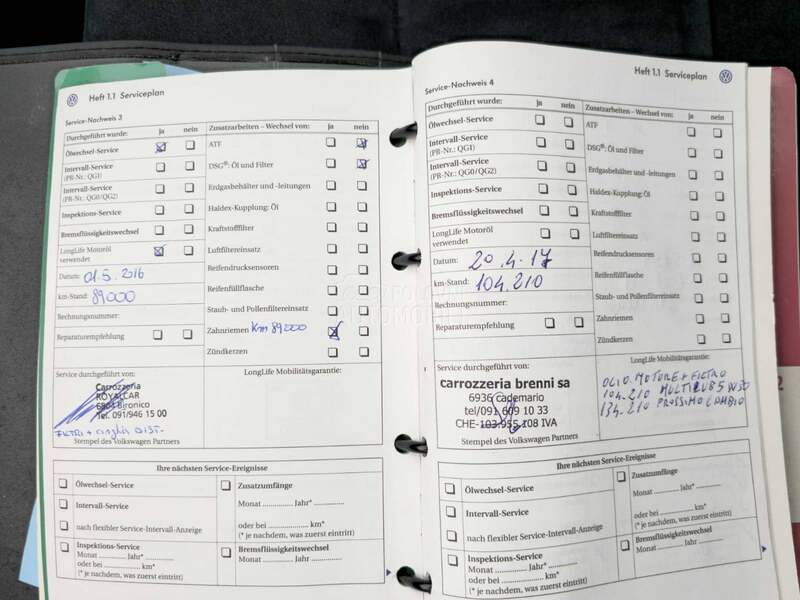 Heft 1.1 Serviceplan
Service-Nachweis 3
Durchgeführt wurde: ja nein
Ölwechsel-Service
Intervall-Service
(PR-Nr.: QG1)
Intervall-Service
(PR-Nr.: QG0/QG2)
Inspektions-Service
Bremsflüssigkeitswechsel
LongLife Motoröl
verwendet
Datum: 01.5.2016
km-Stand: 89000
Rechnungsnummer:
Reparaturempfehlung
Zusatzarbeiten – Wechsel von: ja nein
ATF
DSG®: Öl und Filter
Erdgasbehälter und -leitungen
Haldex-Kupplung: Öl
Kraftstofffilter
Luftfiltereinsatz
Reifendrucksensoren
Reifenfüllflasche
Staub- und Pollenfiltereinsatz
Zahnriemen Km 89000
Zündkerzen
Service durchgeführt von:
Carrozzeria
ROYALCAR
6804 Bironico
Tel. 091/946 15 00
FILTRI + cinghia DIST.
Stempel des Volkswagen Partners
LongLife Mobilitätsgarantie:
Ihre nächsten Service-Ereignisse
Ölwechsel-Service
Intervall-Service
nach flexibler Service-Intervall-Anzeige
Inspektions-Service
Monat .............. Jahr* ..............
oder bei .............. km*
(* je nachdem, was zuerst eintritt)
Zusatzumfänge
Monat .............. Jahr* ..............
oder bei .............. km*
(* je nachdem, was zuerst eintritt)
Bremsflüssigkeitswechsel
Monat .............. Jahr ..............
Heft 1.1 Serviceplan
Service-Nachweis 4
Durchgeführt wurde: ja nein
Ölwechsel-Service
Intervall-Service
(PR-Nr.: QG1)
Intervall-Service
(PR-Nr.: QG0/QG2)
Inspektions-Service
Bremsflüssigkeitswechsel
LongLife Motoröl
verwendet
Datum: 20.4.17
km-Stand: 104.210
Rechnungsnummer:
Reparaturempfehlung
Zusatzarbeiten – Wechsel von: ja nein
ATF
DSG®: Öl und Filter
Erdgasbehälter und -leitungen
Haldex-Kupplung: Öl
Kraftstofffilter
Luftfiltereinsatz
Reifendrucksensoren
Reifenfüllflasche
Staub- und Pollenfiltereinsatz
Zahnriemen
Zündkerzen
Service durchgeführt von:
carrozzeria brenni sa
6936 cademario
tel/091 609 10 33
CHE-103.955.108 IVA
Stempel des Volkswagen Partners
LongLife Mobilitätsgarantie:
OLIO MOTORE + FILTRO
104.210 MULTIPLUS 5W30
134.210 PROSSIMO CAMBIO
Ihre nächsten Service-Ereignisse
Ölwechsel-Service
Intervall-Service
nach flexibler Service-Intervall-Anzeige
Inspektions-Service
Monat .............. Jahr* ..............
oder bei .............. km*
(* je nachdem, was zuerst eintritt)
Zusatzumfänge
Monat .............. Jahr* ..............
oder bei .............. km*
(* je nachdem, was zuerst eintritt)
Bremsflüssigkeitswechsel
Monat .............. Jahr ..............